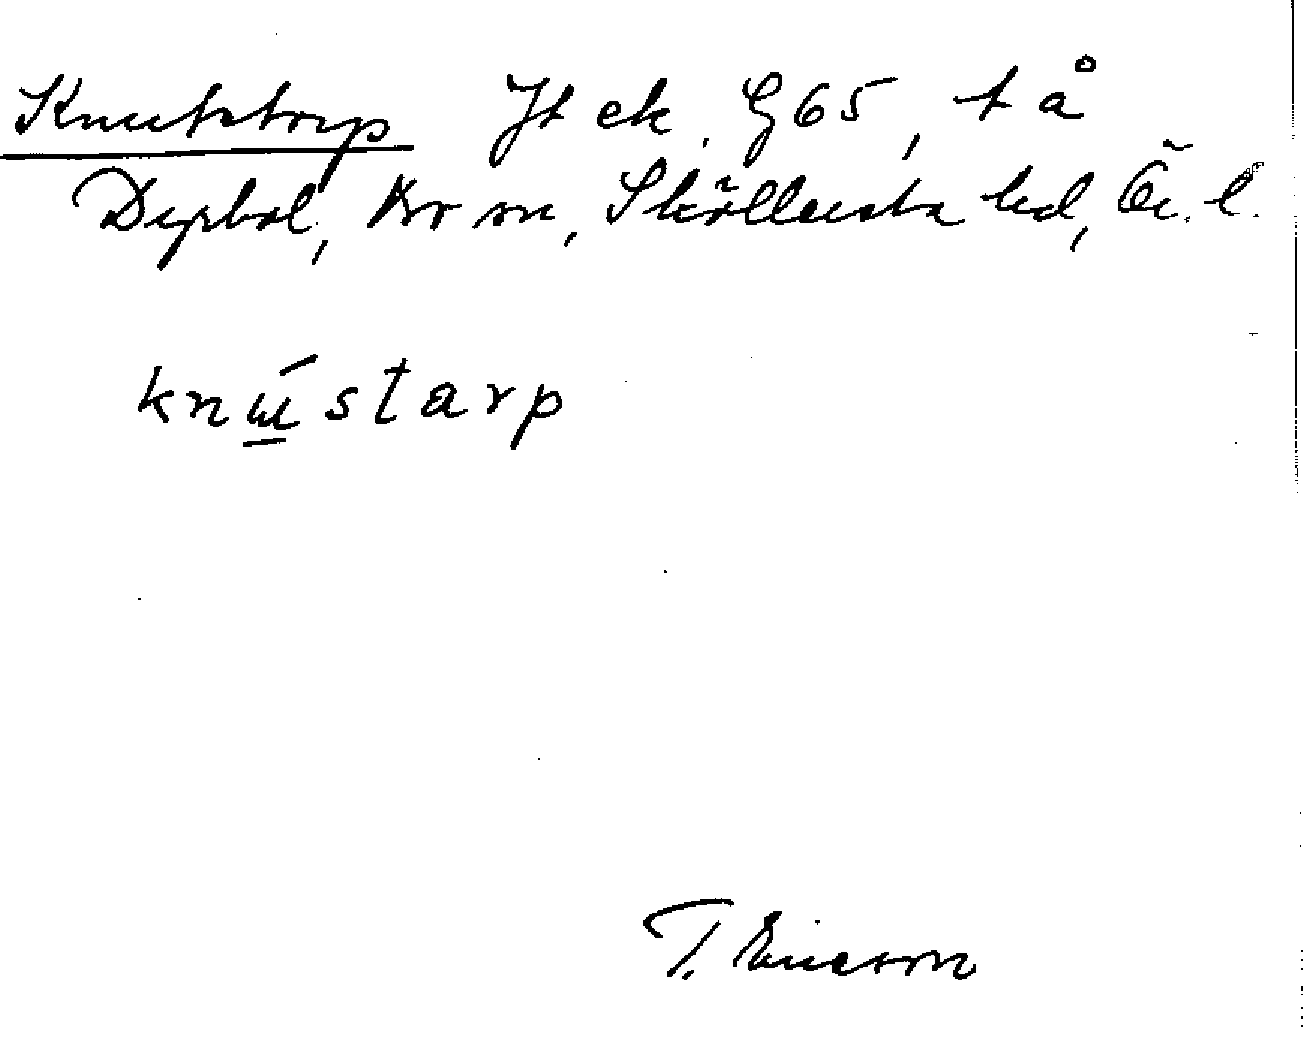 Knutstorp Jt ek. G65, t å
Dypbol, Kvm sn, Sköllersta hd, Ör. l.
knústarp
T. Ericson